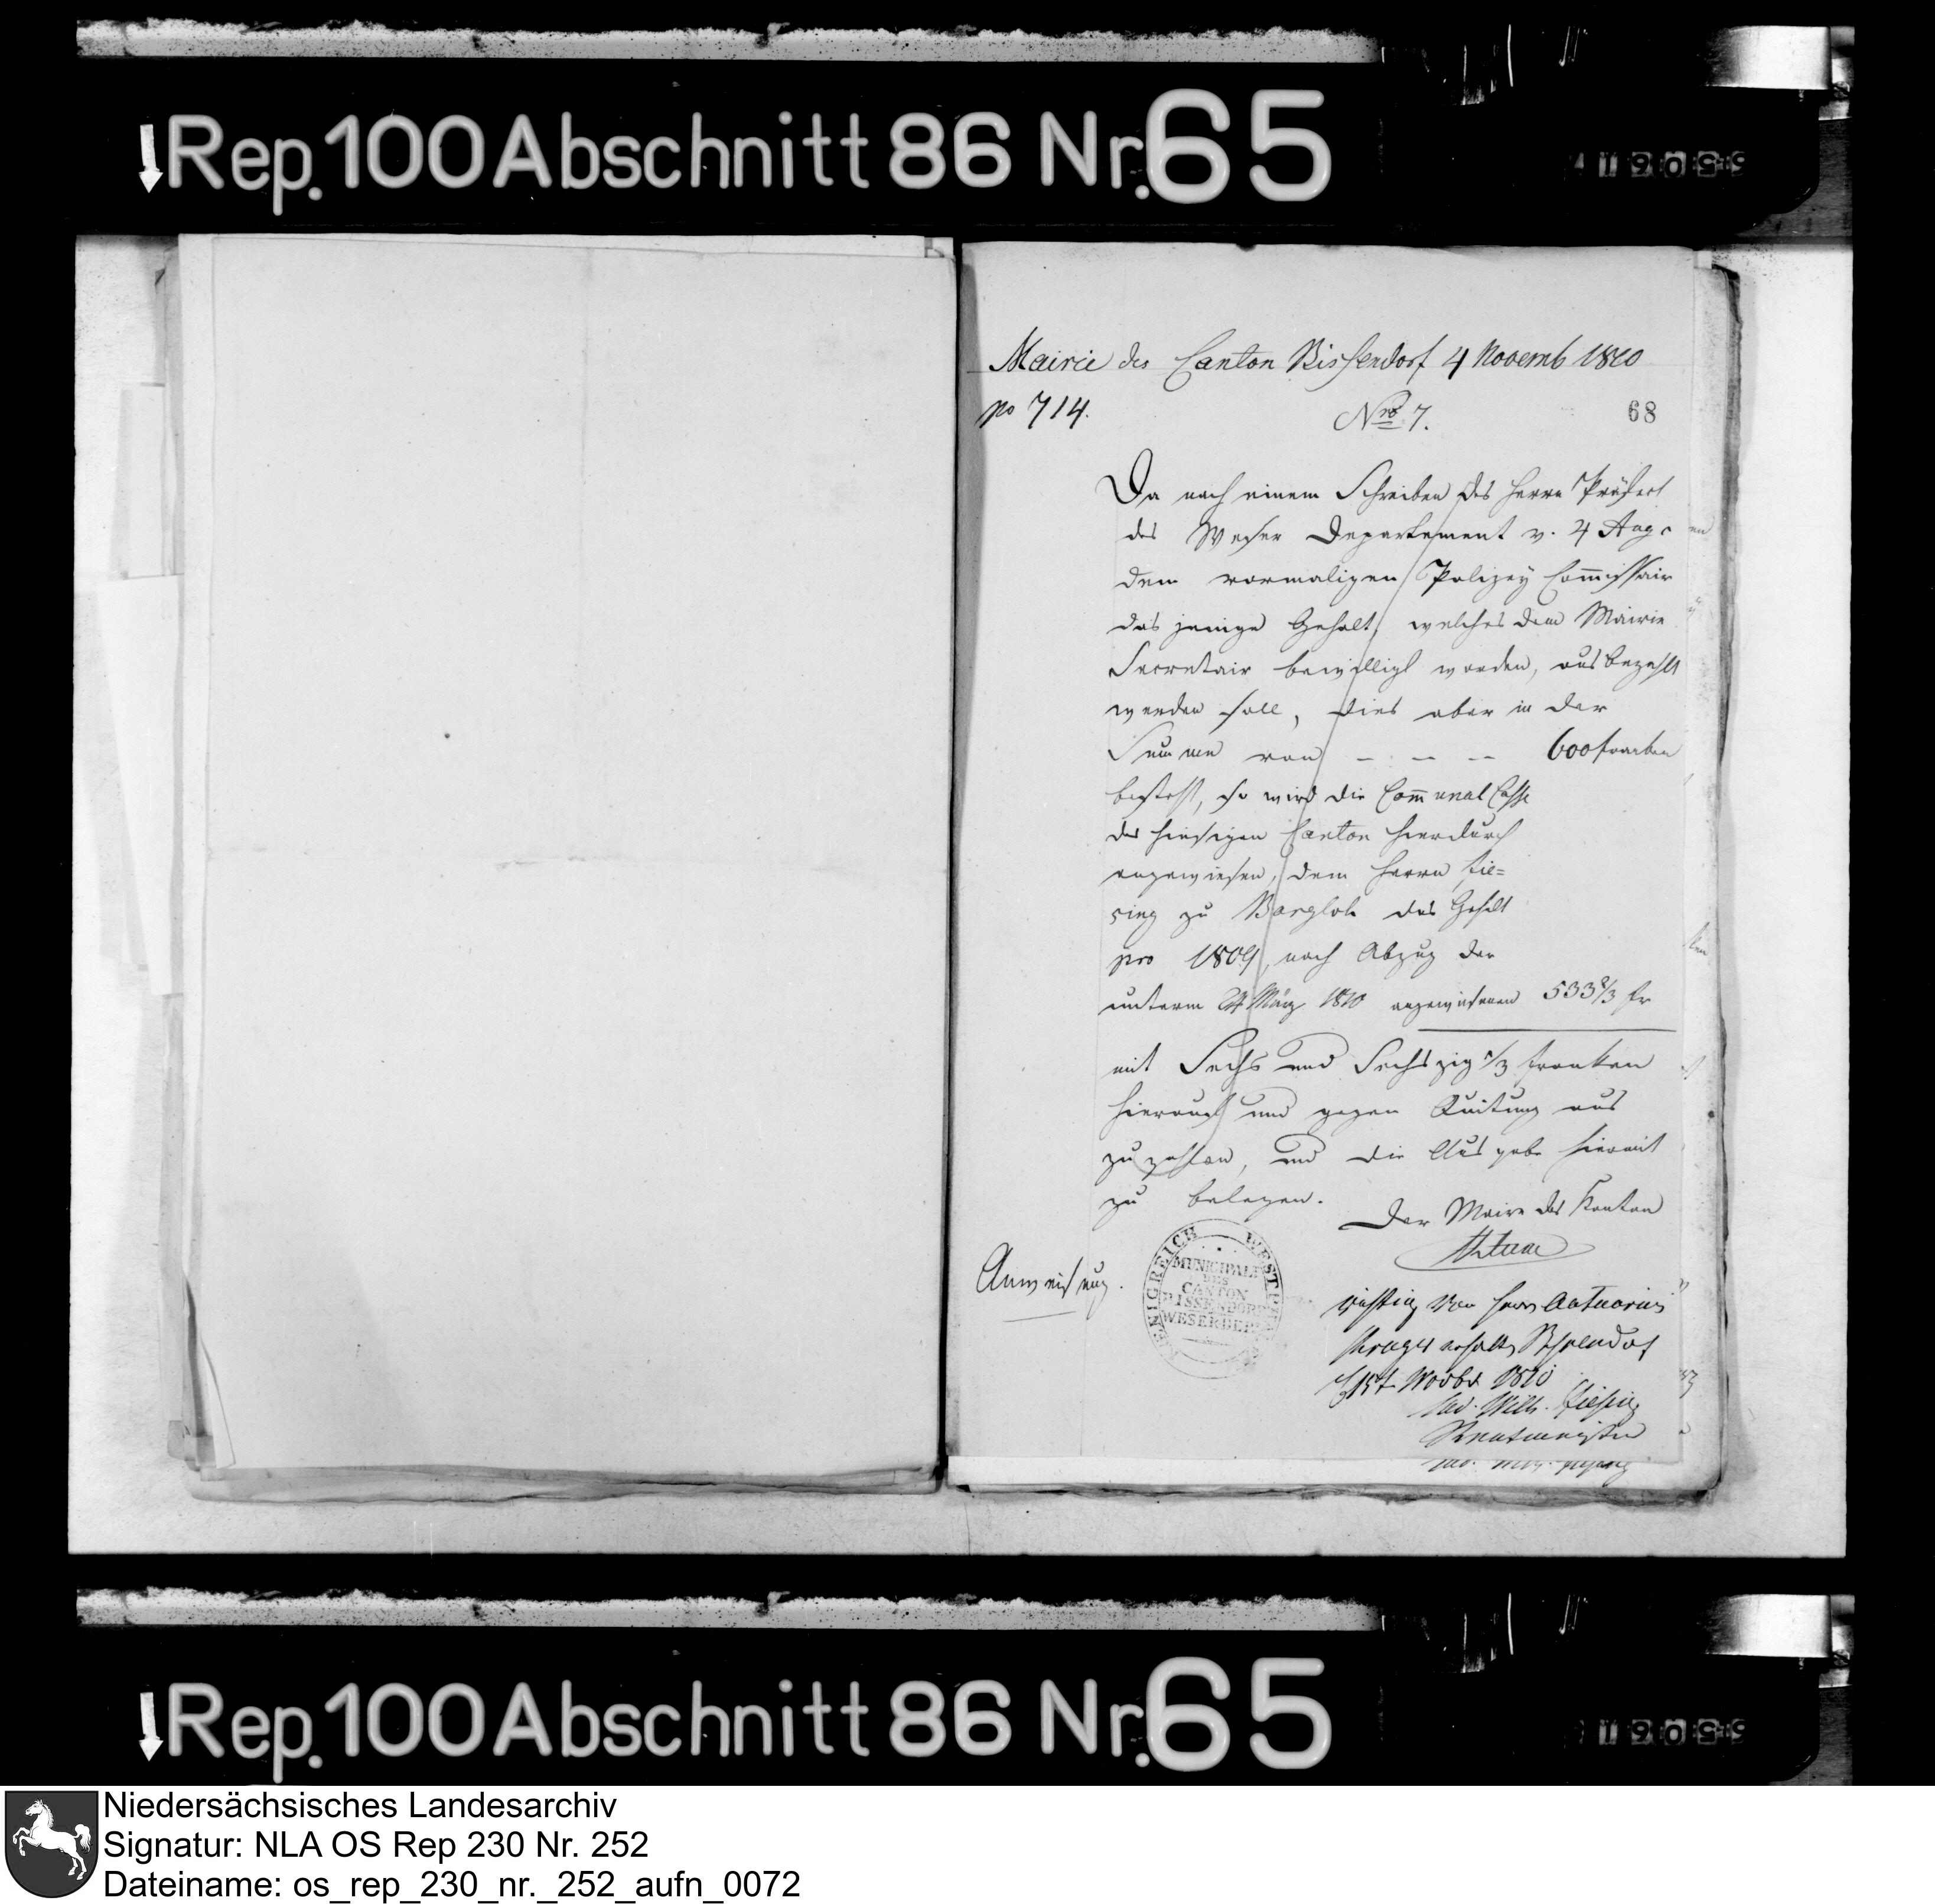 Rep. 100 Abschnitt 86 Nr. 65
Mairie des Canton Bissendorf 4 Novemb 1810
no 714.
Nro 7.
68
Da nach einem Schreiben des Herrn Präfect
des Weser Departement v. 4 Aug c
dem vormaligen Polizey Commissair
das jenige Gehalt, welches dem Mairie
Secretair bewilligt worden, ausbezahlt
werden soll, dies aber in der
Summe von - - - 600 franken
besteht, so wird die Communal Casse
des hiesigen Canton hierdurch
angewiesen, dem Herrn Fie=
sing zu Borgloh das Gehalt
pro 1809, nach Abzug der
unterm März 1810 angewiesenen 533 1/3 fr
mit Sechs und Sechszig 2/3 franken
hierauf und gegen Quitung aus
zuzahlen, und die Ausgabe hiermit
zu belegen.
Der Maire des Kanton
Anweisung.
MUNICIPALT
DES
CANTON
BISSENDORF
WESERDEP
richtig von Herrn Actuarius
Kruger erhalten Bissendorf
15t Novbr 1810
Wilh. Fiesing
Rentmeister
Rep. 100 Abschnitt 86 Nr. 65
Niedersächsisches Landesarchiv
Signatur: NLA OS Rep 230 Nr. 252
Dateiname: os_rep_230_nr._252_aufn_0072